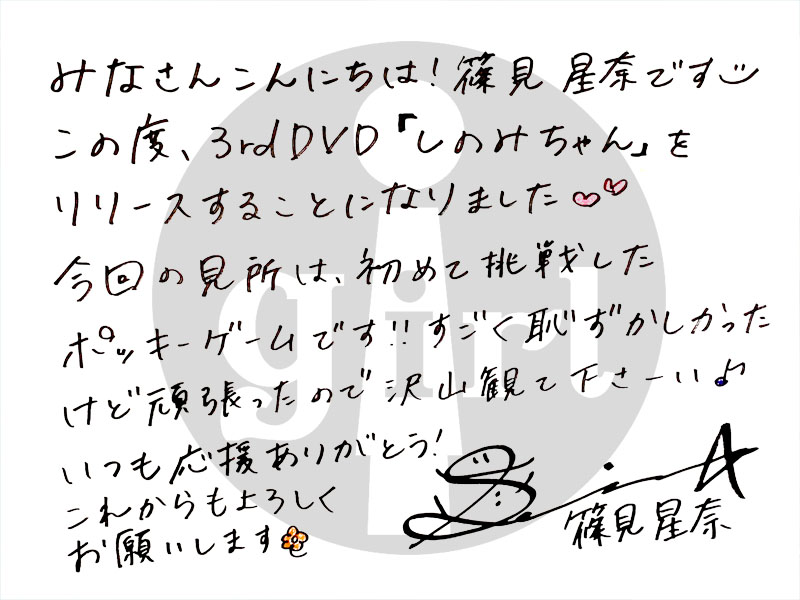 みなさんこんにちは!篠見星奈です
この度、3rdDVD「しのみちゃん」を
リリースすることになりました
今回の見所は、初めて挑戦した
ポッキーゲームです!!すごく恥ずかしかった
けど頑張ったので沢山観て下さーい♪
いつも応援ありがとう!
これからもよろしく
お願いします
篠見星奈
i girl